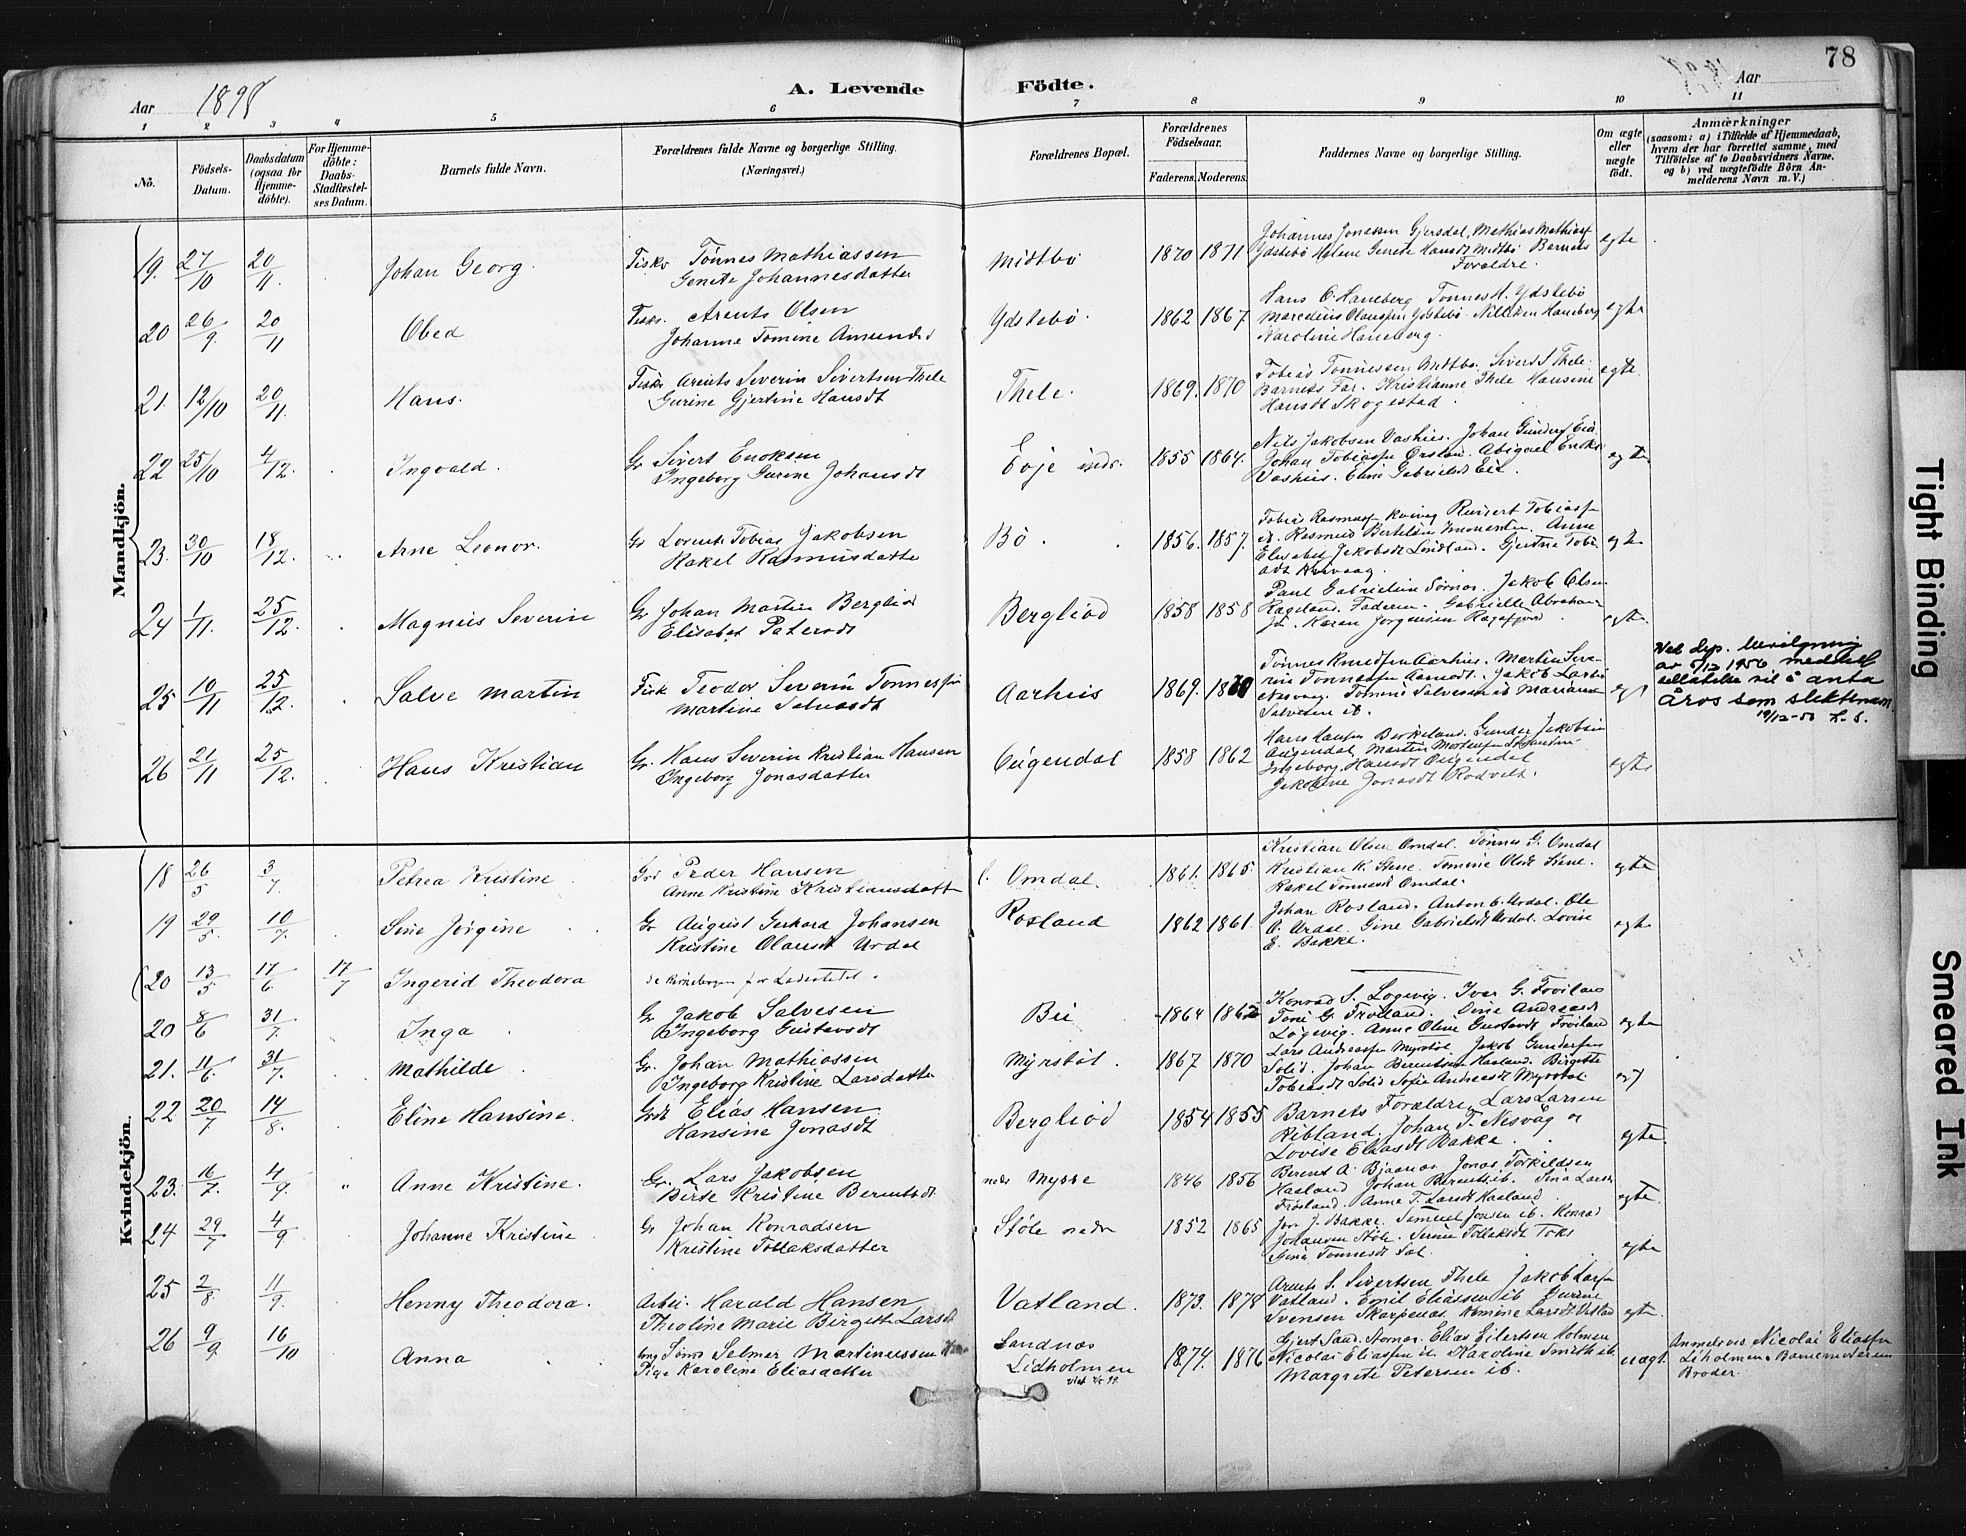 78
Aar 1898 A. Levende Födte. Aar
1 2 3 4 5 6 7 8 9 10 11
No.
Födsels-
Datum.
Daabsdatum
(ogsaa for
Hjemme-
döbte).
For Hjemme-
döbte:
Daabs-
Stadfæstel-
ses Datum.
Barnets fulde Navn.
Forældrenes fulde Navne og borgerlige Stilling.
(Næringsvei.)
Forældrenes Bopæl.
Forældrenes
Födselsaar.
Faderens. Moderens.
Faddernes Navne og borgerlige Stilling.
Om ægte
eller
uægte
födt.
Anmærkninger
(saasom: a) i Tilfælde af Hjemmedaab,
hvem der har forrettet samme, med
Tilföielse af to Daabsvidners Navne,
og b) ved uægtefödte Börn An-
melderens Navn m. V.)
Mandkjön.
19. 27/10 20/11. Johan Georg.
Fisker Tönnes Mathiassen
Genete Johannesdatter
Midtbö 1870 1871
Johannes Jonassen Gjersdal, Mathias
Ydstebö Helene Genete Hansdt Midtbö Barnets
Forældre.
egte
20 26/9 20/11 Obed
Fisker. Arents Olsen
Johanne Tomine Amundsd
Ydstebö 1862 1867
Hans O. Haneberg Tönnes M. Ydstebö
Ydstebö
Karoline Haneberg.
egte
21. 12/10 20/11. Hans.
Fisker Arents Severin Sivertsen Thele
Gurine Gjertine Hansdt
Thele. 1869. 1870
Tobias Tönnessen Midtbö. Sivert S Thele.
Barnets Far. Kristianne Thele
Hansdt Skogestad
egte.
22 25/10 4/12. Ingvald.
Gr Sivert Enoksen
Ingeborg Gurine Johansdt
Eoje indr. 1855 1864.
Nils Jakobsen Vashus. Johan
Johan Tobiassen Abigael
Vashus. Eline Gabrielsdt
egte
23. 30/10 18/12. Arne Leonor.
Gr Lorents Tobias Jakobsen
Rakel Rasmusdatter
Bö. 1856. 1857.
Tobias Rasmussen Kvivag
ib. Rasmus Bertelsen Anne
Elisabet Jakobsdt Lindland. Gjertine Tobi
asdt Kvivaag.
egte
24 1/11. 25/12. Magnus Severin
Gr Johan Martin Bergliod
Elisabet Petersdt
Bergliod 1858 1858
Paul Gabrielsen Jakob Olsen
Rageland. Faderen. Gabrielle Abraham
Karen Jörgensen
egte.
25 10/11 25/12. Salve Martin
Fisk Teodor Severin Tönnessen
Martine Salvesdt
Aarhus 1869. 1870
Tönnes Knudsen Aarhus. Martin Seve-
rin Tönnessen Aamodt. Jakob Larsen
Tomine Salvesen ib Mariane
Salvesen ib.
egt
Ved dep. bevilgning
av 5/12 1956 meddelt
tillatelse til å anta
Åros som slektsnavn.
26 21/11 25/12. Hans Kristian
Gr. Hans Severin Kristian Hansen
Ingeborg Jonasdatter
Augendal 1858 1862
Hans Hansen Birkeland. Gunder Jakobsen
Augendal Martin Mortensen
Ingeborg Hansdt Augendal
Jakobine Jonasdt Rodvelt.
egte
Kvindekjön.
18 26/5 3/7. Petrea Kristine
Peder Hansen
Anne Kristine Kristiansdatt
Omdal. 1861. 1865.
Kristian Olsen Omdal. Tönnes G. Omdal
Kristian K. Stene. Tomine Olsdt Stene.
Rakel Tönnesdt Omdal.
egte
19 29/5. 10/7. Sine Jörgine
Gr August Gerhard Johansen
Kristine Olausdt Urdal
Rosland 1862 1861.
Johan Rosland. Anton O. Urdal. Ole
O. Urdal. Gine Gabrielsdt Urdal. Lovise
E. Bakke.
egte
(20 13/5 17/6. 17/7 Ingerid Theodora
se Kirkebogen for Ladestedet.
20 8/6 31/7. Inga
Gr Jakob Salvesen
Ingeborg Gustavsdt
Bu 1864 1862
Konrad S. Logevig. Ivar G. Fröiland
Toni G. Fröiland. Sine Andreasdt
Logevig. Anne Oline Gustavsdt Fröiland
egte
21. 11/6 31/7. Mathilde
Gr. Johan Mathiassen
Ingeborg Kristine Larsdatter
Myrstöl. 1867 1870
Lars Andreassen Myrstöl Jakob Gundersen
Solid. Johan Berentsen Haaland. Birgitte
Tobiasdt Solid Sofie Andreasdt Myrstöl
22 20/7 14/8. Eline Hansine.
Elias Hansen
Hansine Jonasdt
Bergliod 1854 1855
Barnets Forældre, Lars Larsen
Ribland. Johan T. Nesvåg og
Lovise Eliasdt Bakke.
egte.
23. 16/7. 4/9. " Anne Kristine.
Gr. Lars Jakobsen
Birte Kristine Berentsdt
nedr Mysse 1846 1856
Berent A. Bjaanæs Jonas Torkildsen
Haaland Johan Berentsen ib. Sina Larsdt
Fröiland Anne T. Larsdt Haaland.
egte.
24 29/7 4/9 Johanne Kristine
Gr Johan Konradsen
Kristine Tollaksdatter
Stöle nedr 1852 1865
Jon J. Bakke. Samuel Jonsen ib. Konrad
Johansen Stöle. Serine Tollaksdt Toks
Gina Tönnesdt
egte
25 2/8 11/9. Henny Theodora.
Arbei. Harald Hansen
Theoline Marie Birgitte Larsdt
Vatland. 1873. 1878
Arents S. Sivertsen Thele Jakob Larsen
Vatland. Emil Eliassen ib Gurine
Svensen Skarpenes Larsdt Vatland
egte.
26 9/9. 16/10 Anna
Selmer Martinussen
Pige Karoline Eliasdatter
Sandnæs
Lidholmen
viet
1874. 1876
Gjert Sand. Stornæs. Elias Eilertsen Holmen
Nicolai Eliassen ib Karoline Smith ib
Margrete Petersen ib.
uægt.
Anmeldes Nicolai Eliassen
Lidholmen. Barnemoderens
Broder.
Tight Binding
Smeared Ink